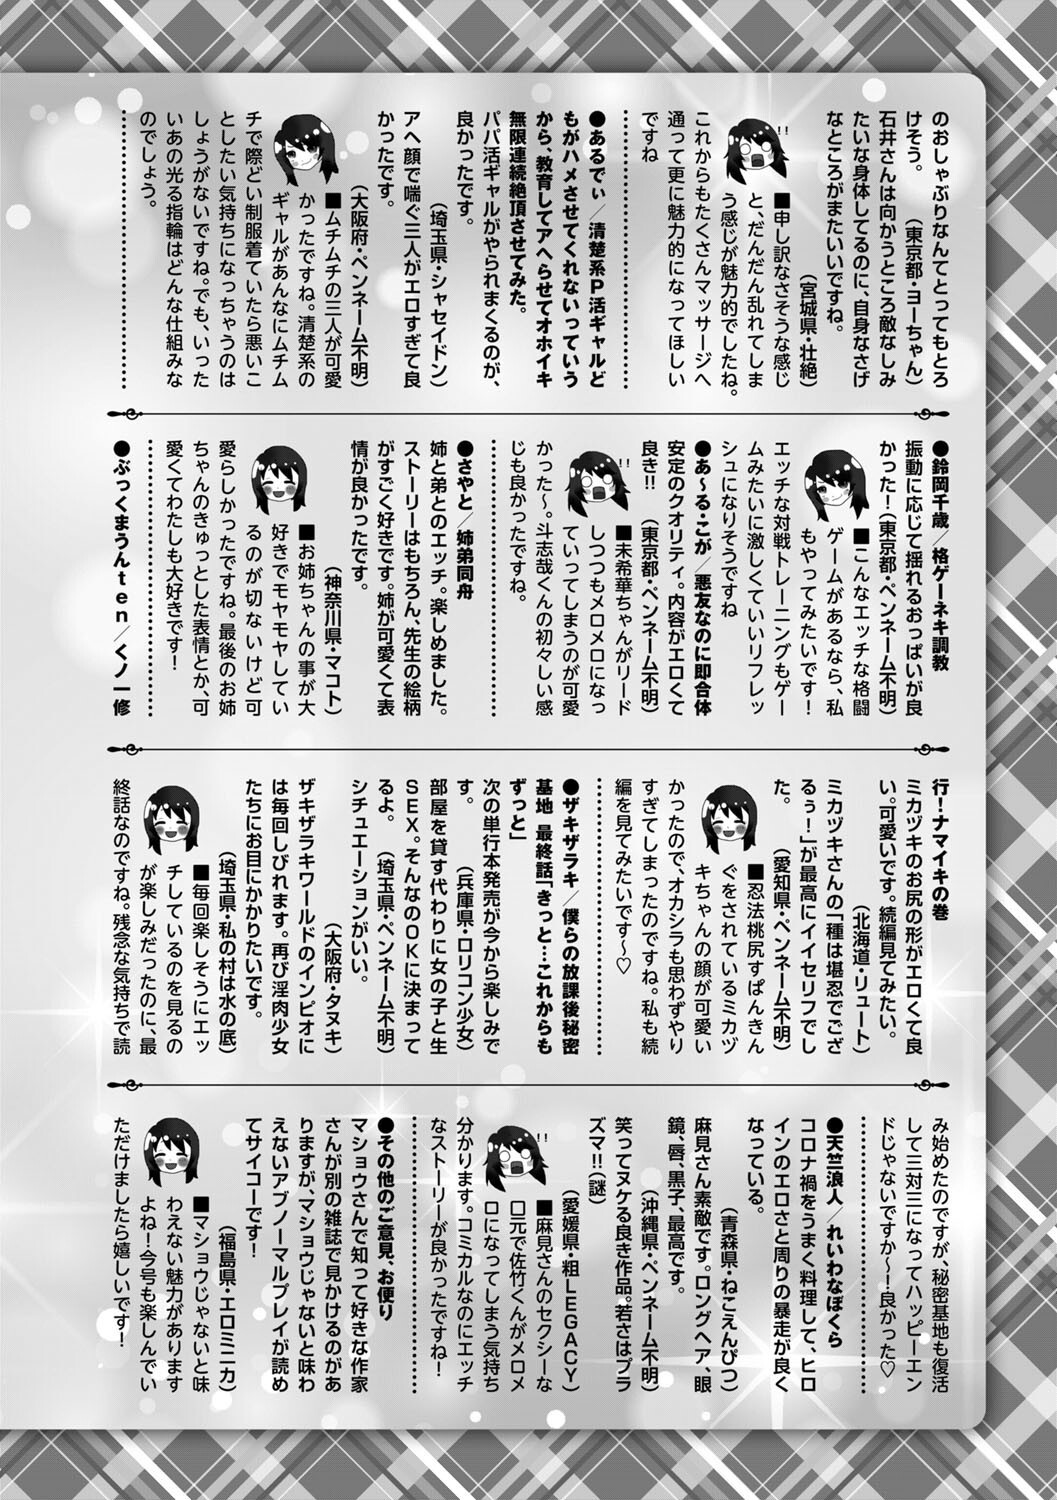 のおしゃぶりなんてとってもとろ
けそう。　（東京都・ヨーちゃん）
石井さんは向かうところ敵なしみ
たいな身体してるのに、自身なさげ
なところがまたいいですね。
（宮城県・壮絶）
■申し訳なさそうな感じ
と、だんだん乱れてしま
う感じが魅力的でしたね。
これからもたくさんマッサージへ
通って更に魅力的になってほしい
ですね
●あるでぃ／清楚系Ｐ活ギャルど
もがハメさせてくれないっていう
から、教育してアヘらせてオホイキ
無限連続絶頂させてみた。
パパ活ギャルがやられまくるのが、
良かったです。
（埼玉県・シャセイドン）
アヘ顔で喘ぐ三人がエロすぎて良
かったです。
（大阪府・ペンネーム不明）
■ムチムチの三人が可愛
かったですね。清楚系の
ギャルがあんなにムチム
チで際どい制服着ていたら悪いこ
としたい気持ちになっちゃうのは
しょうがないですね。でも、いった
いあの光る指輪はどんな仕組みな
のでしょう。
●鈴岡千歳／格ゲーネキ調教
振動に応じて揺れるおっぱいが良
かった！（東京都・ペンネーム不明）
■こんなエッチな格闘
ゲームがあるなら、私
もやってみたいです！
エッチな対戦トレーニングもゲー
ムみたいに激しくていいリフレッ
シュになりそうですね
●あ〜る・こが／悪友なのに即合体
安定のクオリティ。内容がエロくて
良き!!　（東京都・ペンネーム不明）
■未希華ちゃんがリード
しつつもメロメロになっ
ていってしまうのが可愛
かった〜。斗志哉くんの初々しい感
じも良かったですね。
●さやと／姉弟同舟
姉と弟とのエッチ。楽しめました。
ストーリーはもちろん、先生の絵柄
がすごく好きです。姉が可愛くて表
情が良かったです。
（神奈川県・マコト）
■お姉ちゃんの事が大
好きでモヤモヤしてい
るのが切ないけど可
愛らしかったですね。最後のお姉
ちゃんのきゅっとした表情とか、可
愛くてわたしも大好きです！
●ぶっくまうんｔｅｎ／くノ一修
行！ナマイキの巻
ミカヅキのお尻の形がエロくて良
い。可愛いです。続編見てみたい。
（北海道・リュート）
ミカヅキさんの「種は堪忍でござ
るぅ！」が最高にイイセリフでし
た。　（愛知県・ペンネーム不明）
■忍法桃尻すぱんきん
ぐをされているミカヅ
キちゃんの顔が可愛い
かったので、オカシラも思わずやり
すぎてしまったのですね。私も続
編を見てみたいです〜♡
●ザキザラキ／僕らの放課後秘密
基地 最終話「きっと…これからも
ずっと」
次の単行本発売が今から楽しみで
す。　（兵庫県・ロリコン少女）
部屋を貸す代わりに女の子と生
ＳＥＸ。そんなのＯＫに決まって
るよ。　（埼玉県・ペンネーム不明）
シチュエーションがいい。
（大阪府・タヌキ）
ザキザラキワールドのインピオに
は毎回しびれます。再び淫肉少女
たちにお目にかかりたいです。
（埼玉県・私の村は水の底）
■毎回楽しそうにエッ
チしているのを見るの
が楽しみだったのに、最
終話なのですね。残念な気持ちで読
み始めたのですが、秘密基地も復活
して三対三になってハッピーエン
ドじゃないですか〜！良かった♡
●天竺浪人／れいわなぼくら
コロナ禍をうまく料理して、ヒロ
インのエロさと周りの暴走が良く
なっている。
（青森県・ねこえんぴつ）
麻見さん素敵です。ロングヘア、眼
鏡、唇、黒子、最高です。
（沖縄県・ペンネーム不明）
笑ってヌケる良き作品。若さはプラ
ズマ!!（謎）
（愛媛県・粗ＬＥＧＡＣＹ）
■麻見さんのセクシーな
口元で佐竹くんがメロメ
ロになってしまう気持ち
分かります。コミカルなのにエッチ
なストーリーが良かったですね！
●その他のご意見、お便り
マショウさんで知って好きな作家
さんが別の雑誌で見かけるのがあ
りますが、マショウじゃないと味わ
えないアブノーマルプレイが読め
てサイコーです！
（福島県・エロミニカ）
■マショウじゃないと味
わえない魅力があります
よね！今号も楽しんでい
ただけましたら嬉しいです！